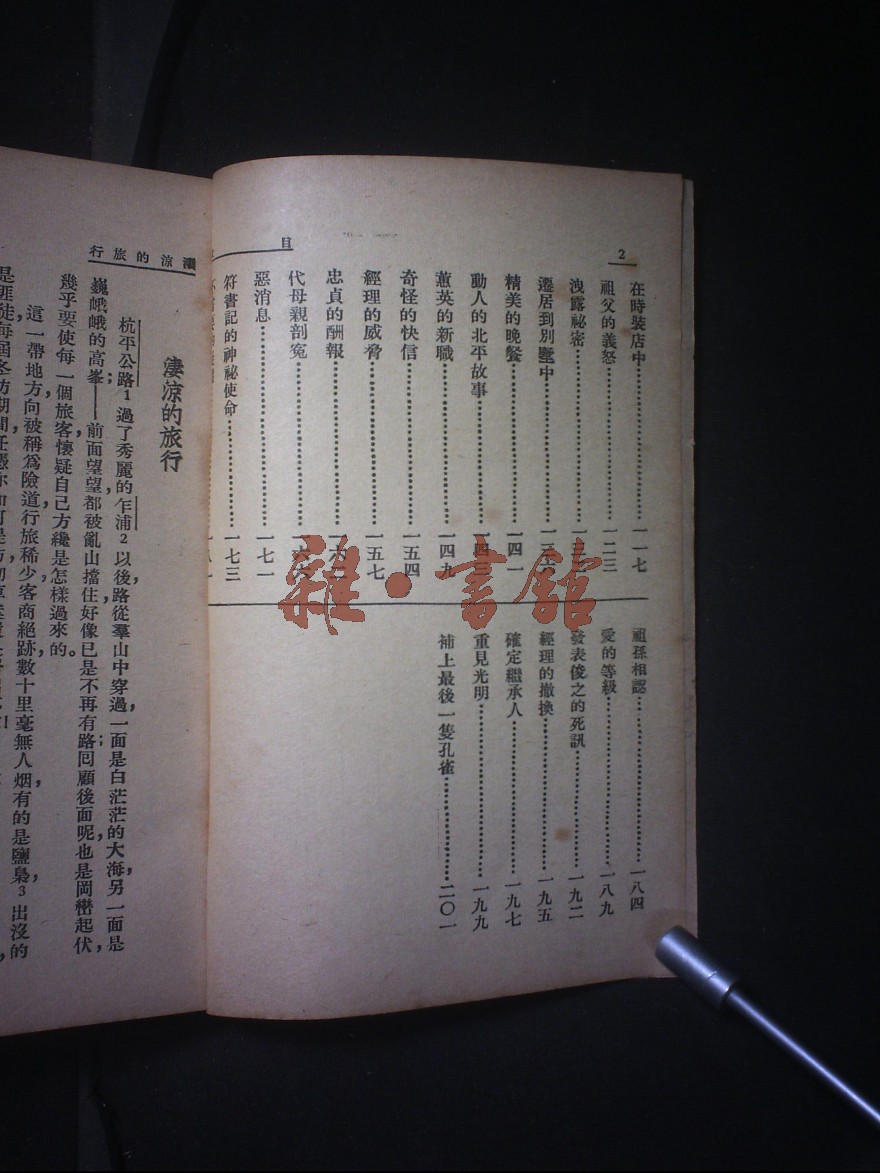 2
目
在時裝店中……一一七
祖父的義怒……一二三
洩露祕密
遷居到別墅中
精美的晚餐……一四一
動人的北平故事……一四三
蕙英的新職……一四九
奇怪的快信……一五四
經理的威脅……一五七
忠貞的酬報
代母親剖冤
惡消息……一七一
符書記的神祕使命……一七三
祖孫相認……一八四
愛的等級……一八九
發表俊之的死訊……一九二
經理的撤換……一九五
確定繼承人……一九七
重見光明……一九九
補上最後一隻孔雀……二〇一
雜·書館
涼的旅行
淒涼的旅行
杭平公路1過了秀麗的乍浦2以後，路從羣山中穿過，一面是白茫茫的大海，另一面是
巍峨的高峯；——前面望望，都被亂山擋住，好像已是不再有路；回顧後面呢，也是岡巒起伏，
幾乎要使每一個旅客懷疑自己方纔是怎樣過來的。
這一帶地方，向被稱爲險道，行旅稀少，客商絕跡，數十里毫無人烟，有的是鹽梟3出沒的